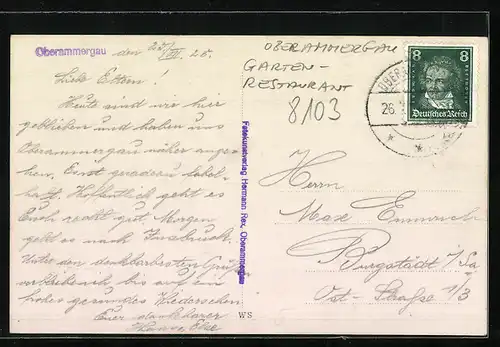 Oberammergau
den 25/VII. 28.
Liebe Eltern!
Heute sind wir hier
geblieben und haben uns
Oberammergau näher angese-
hen. Einst geradezu fabel-
haft. Hoffentlich geht es
Euch recht gut. Morgen
geht es nach Innsbruck.
Unter den denkbarbesten Grüßen
verbleibe ich bis auf ein
frohes gesundes Wiedersehen
Euer dankbarer
Hanns, Else
OBERAMMERGAU
GARTEN-
RESTAURANT
8103
Fotokunstverlag Hermann Rex, Oberammergau
WS
8 8
Deutsches Reich
OBER
26.
Herrn
Max
Burgstädt i/Sa
Ost-Straße 1/3